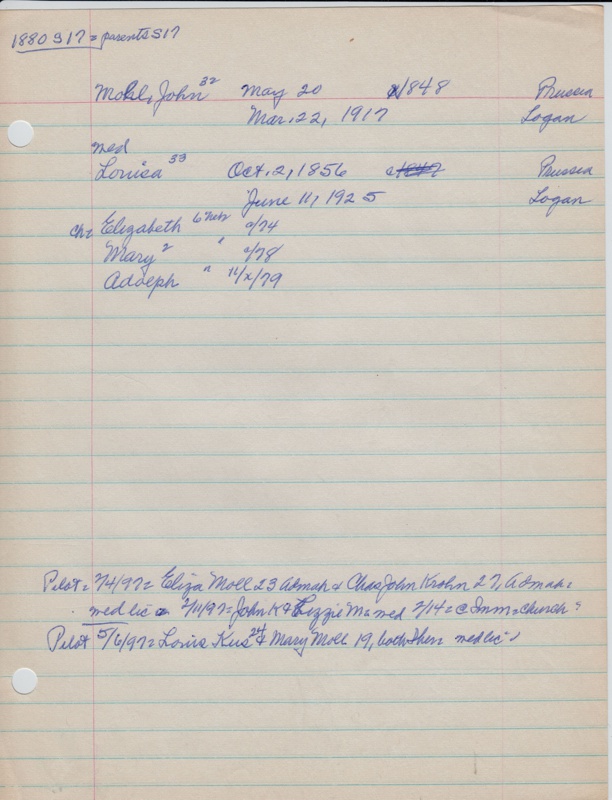 1880 S17 = parents S17
Mohl, John 32 May 20 1848 Prussia
Mar. 22, 1917 Logan
med
Louisa 33 Oct. 2, 1856 Prussia
June 11, 1925 Logan
ch = Elizabeth 6 Nebr c/74
Mary 2 " c/78
Adolph " 11/x/79
Pilot = 2/4/97 = Eliza Moll 23 Admah & Chas John Krohn 27, Admah =
med lic 2/11/97 = John K & Lizzie M = med 2/14 = @ Imm = church =
Pilot 5/6/97 = Louis Kus 24 & Mary Moll 19, both Hern med lic